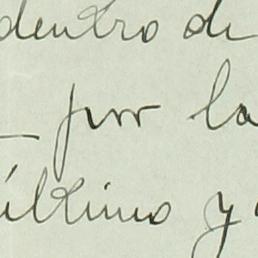 dentro de
por la
último y